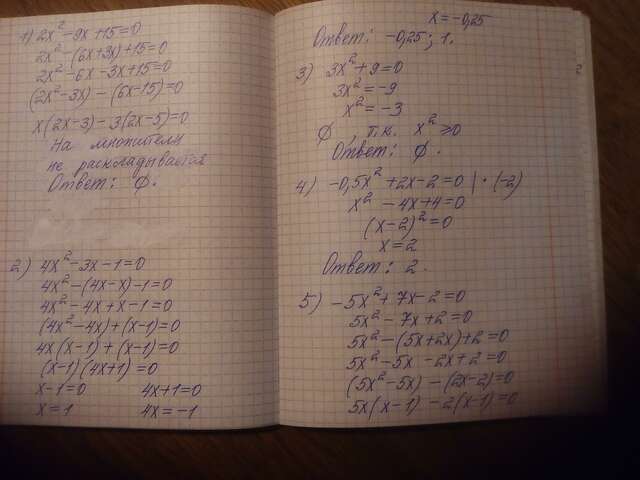 1) 2x² - 9x + 15 = 0
2x² - (6x + 3x) + 15 = 0
2x² - 6x - 3x + 15 = 0
(2x² - 3x) - (6x - 15) = 0
x(2x - 3) - 3(2x - 5) = 0
На множители
не раскладывается
Ответ: ∅.
2) 4x² - 3x - 1 = 0
4x² - (4x - x) - 1 = 0
4x² - 4x + x - 1 = 0
(4x² - 4x) + (x - 1) = 0
4x(x - 1) + (x - 1) = 0
(x - 1)(4x + 1) = 0
x - 1 = 0 4x + 1 = 0
x = 1 4x = -1
x = -0,25
Ответ: -0,25; 1.
3) 3x² + 9 = 0
3x² = -9
x² = -3
∅, т.к. x² ≥ 0
Ответ: ∅.
4) -0,5x² + 2x - 2 = 0 | · (-2)
x² - 4x + 4 = 0
(x - 2)² = 0
x = 2
Ответ: 2.
5) -5x² + 7x - 2 = 0
5x² - 7x + 2 = 0
5x² - (5x + 2x) + 2 = 0
5x² - 5x - 2x + 2 = 0
(5x² - 5x) - (2x - 2) = 0
5x(x - 1) - 2(x - 1) = 0